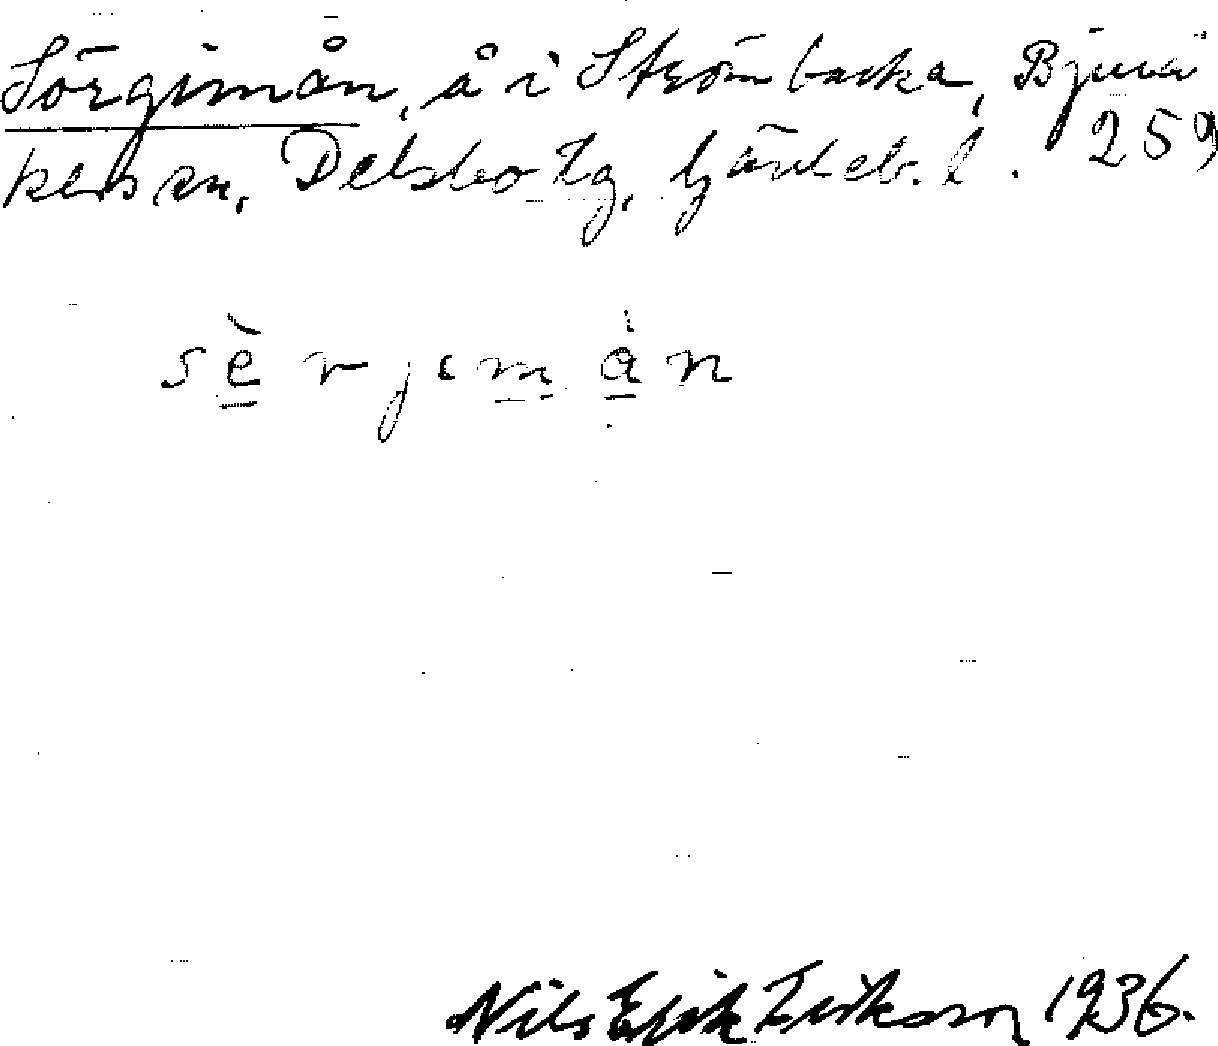 Sörgimån, å i Strömbacka, Bjurå
ker sn, Delsbo tg, Gävleb. l. 259
sèrjimàn
Nils Erik Eriksson 1936.